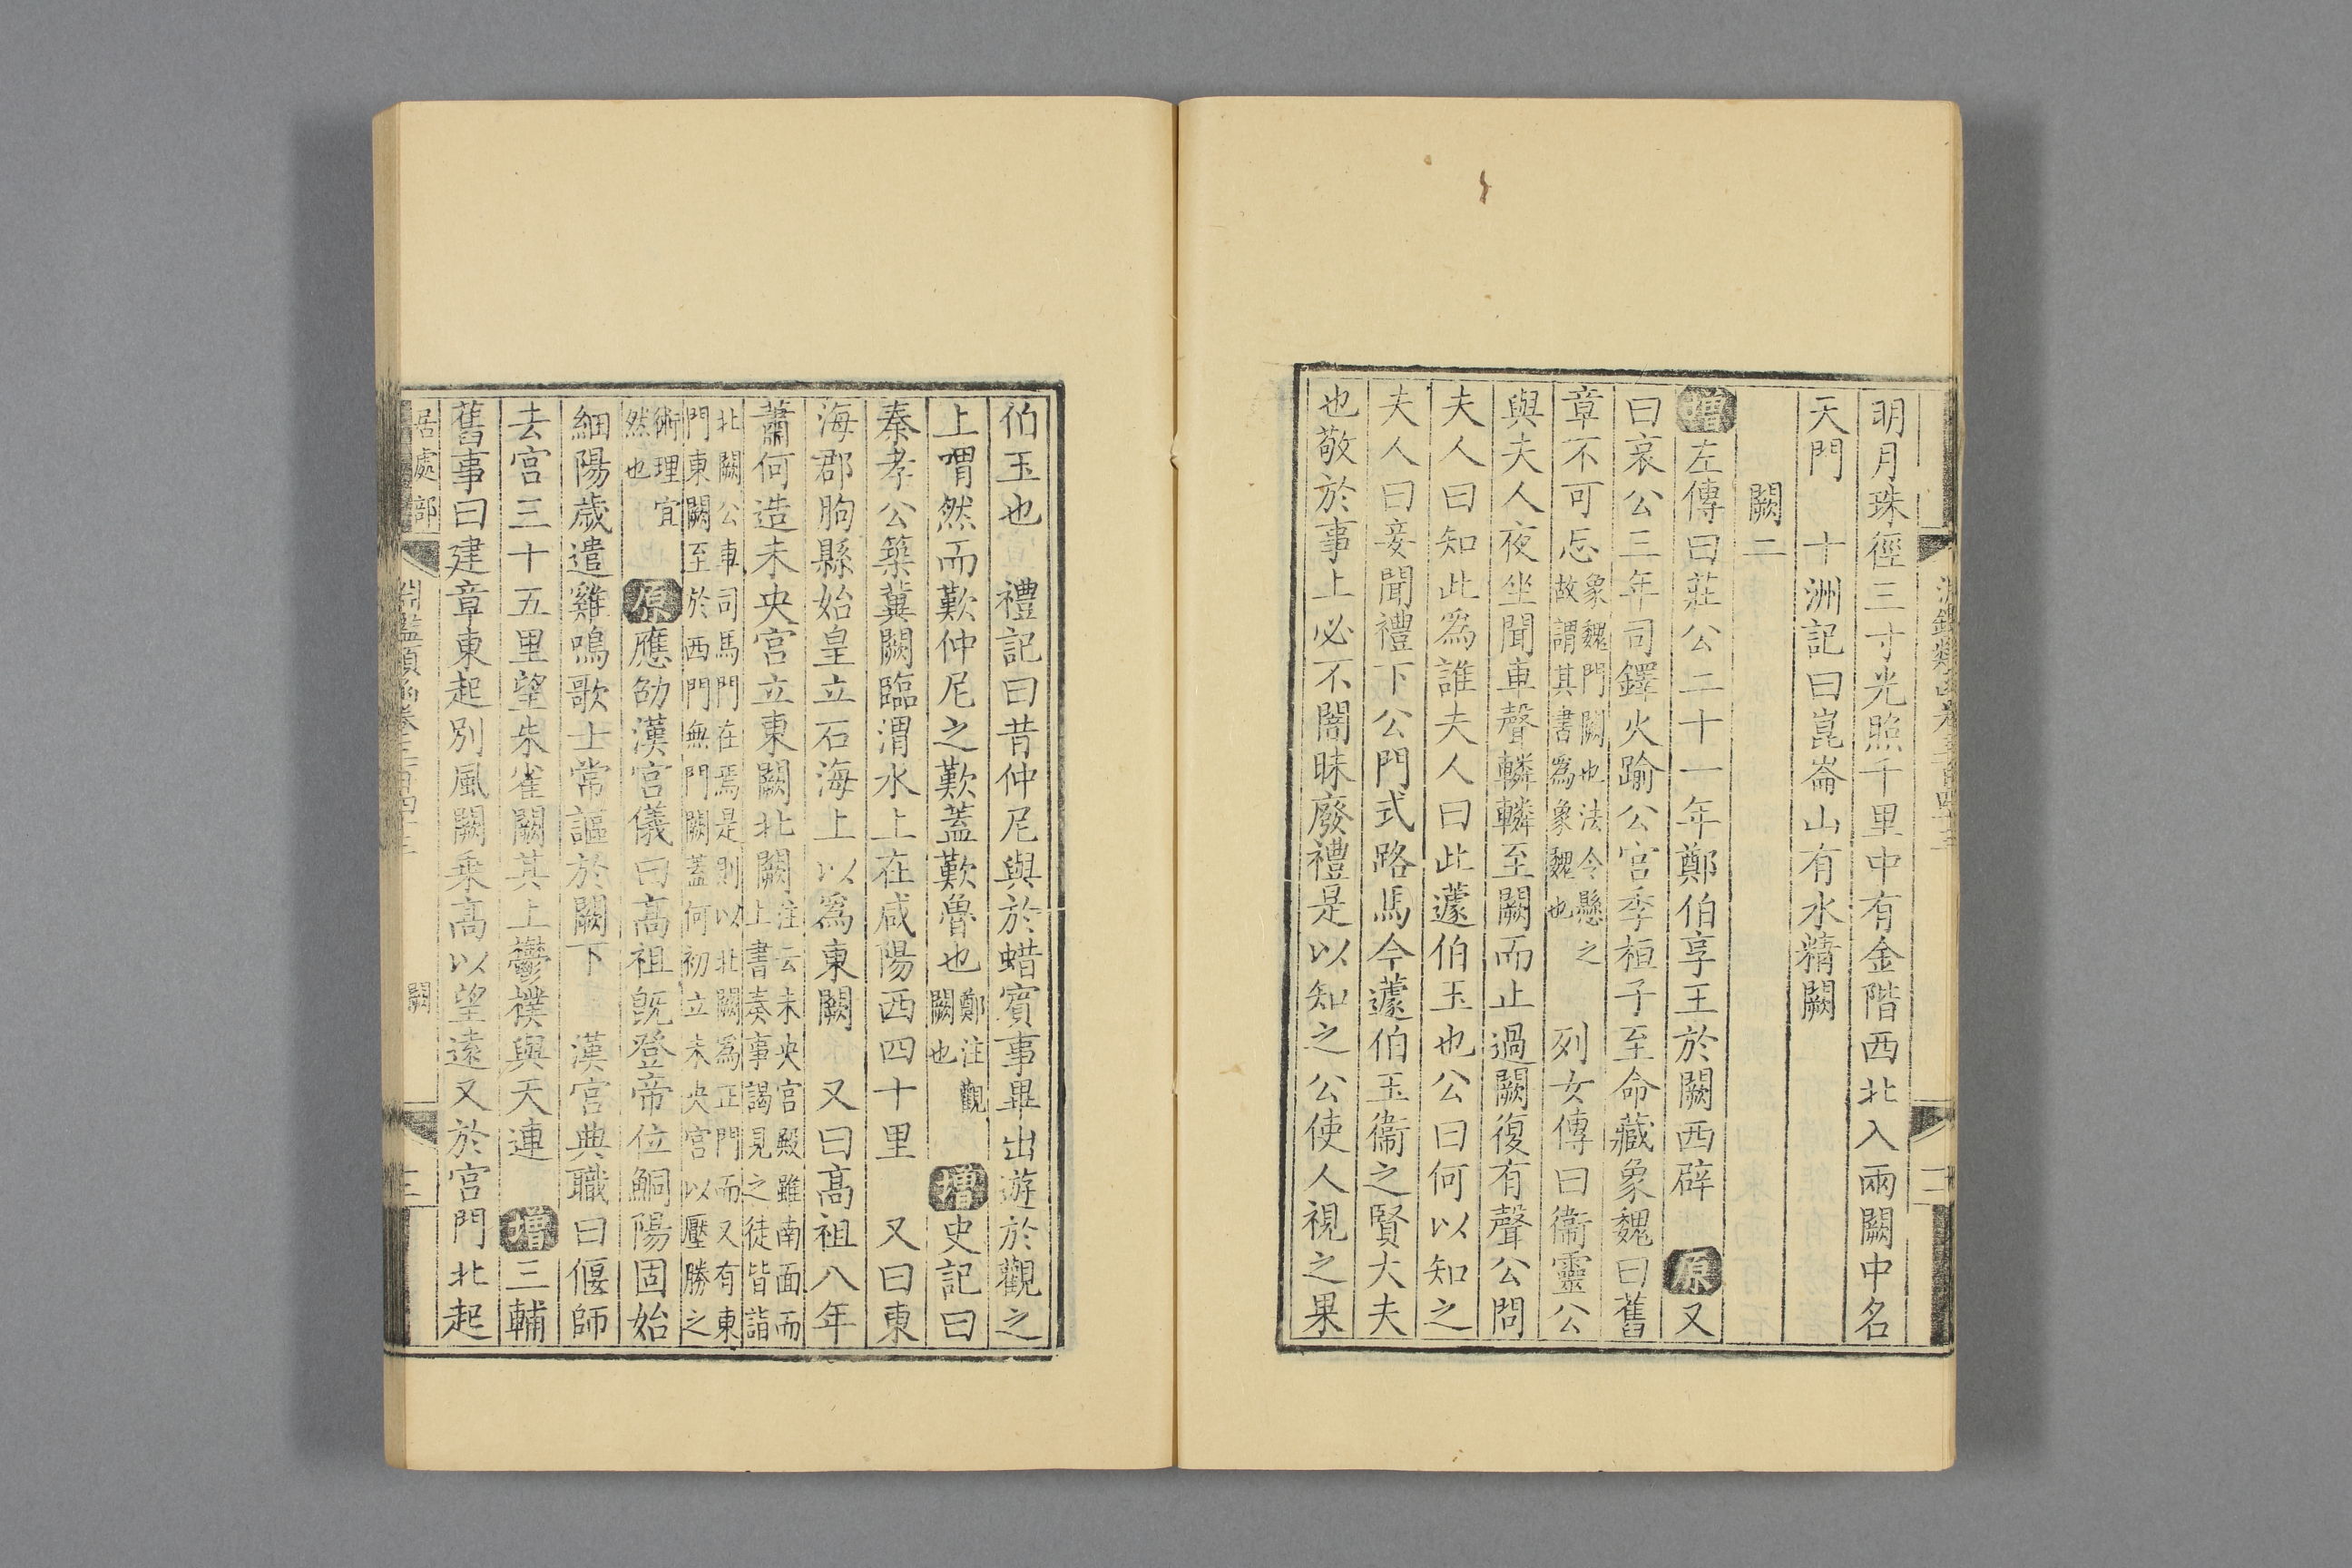 明月珠徑三寸光照千里中有金階西北入兩闕中名
天門　十洲記曰崑崙山有水精闕
闕二
增左傳曰莊公二十一年鄭伯享王於闕西辟　原又
曰哀公三年司鐸火踰公宮季桓子至命藏象魏曰舊
章不可忘象魏門闕也法令懸之故謂其書為象魏也　列女傳曰衞靈公
與夫人夜坐聞車聲轔轔至闕而止過闕復有聲公問
夫人曰知此為誰夫人曰此蘧伯玉也公曰何以知之
夫人曰妾聞禮下公門式路馬今蘧伯玉衞之賢大夫
也敬於事上必不闇昧廢禮是以知之公使人視之果
伯玉也　禮記曰昔仲尼與於蜡賓事畢出遊於觀之
上喟然而歎仲尼之歎蓋歎魯也鄭注觀闕也　增史記曰
秦孝公築冀闕臨渭水上在咸陽西四十里　又曰東
海郡朐縣始皇立石海上以為東闕　又曰高祖八年
蕭何造未央宮立東闕北闕注云未央宮殿雖南面而上書奏事謁見之徒皆詣
北闕公車司馬門在焉是則以北闕為正門而又有東門東闕至於西門無門闕蓋何初立未央宮以壓勝之
術理宜然也　原應劭漢宮儀曰高祖既登帝位鮦陽固始
細陽歲遣雞鳴歌士常謳於闕下　漢宮典職曰偃師
去宮三十五里望朱雀闕其上鬱襆與天連　增三輔
舊事曰建章東起別風闕乘高以望遠又於宮門北起
居處部　淵鑑類函卷三百四十三　闕　三